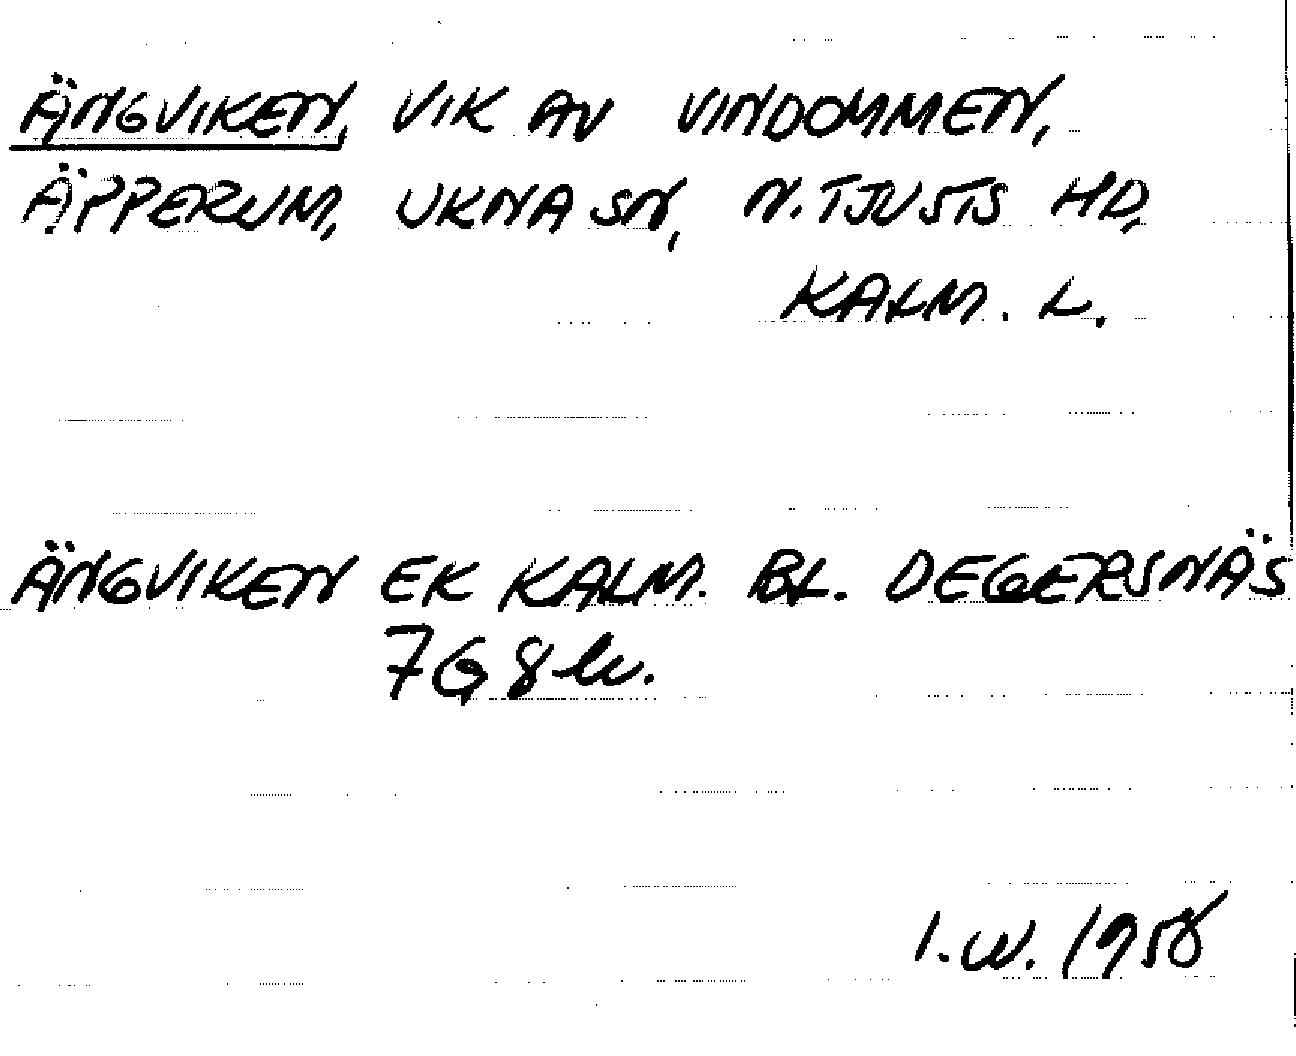 ÄNGVIKEN, VIK AV VINDOMMEN,
ÄPPERUM, UKNA SN, N. TJUSTS HD,
KALM. L.
ÄNGVIKEN EK KALM. BL. DEGERSNÄS
7G 8
I.W. 1958